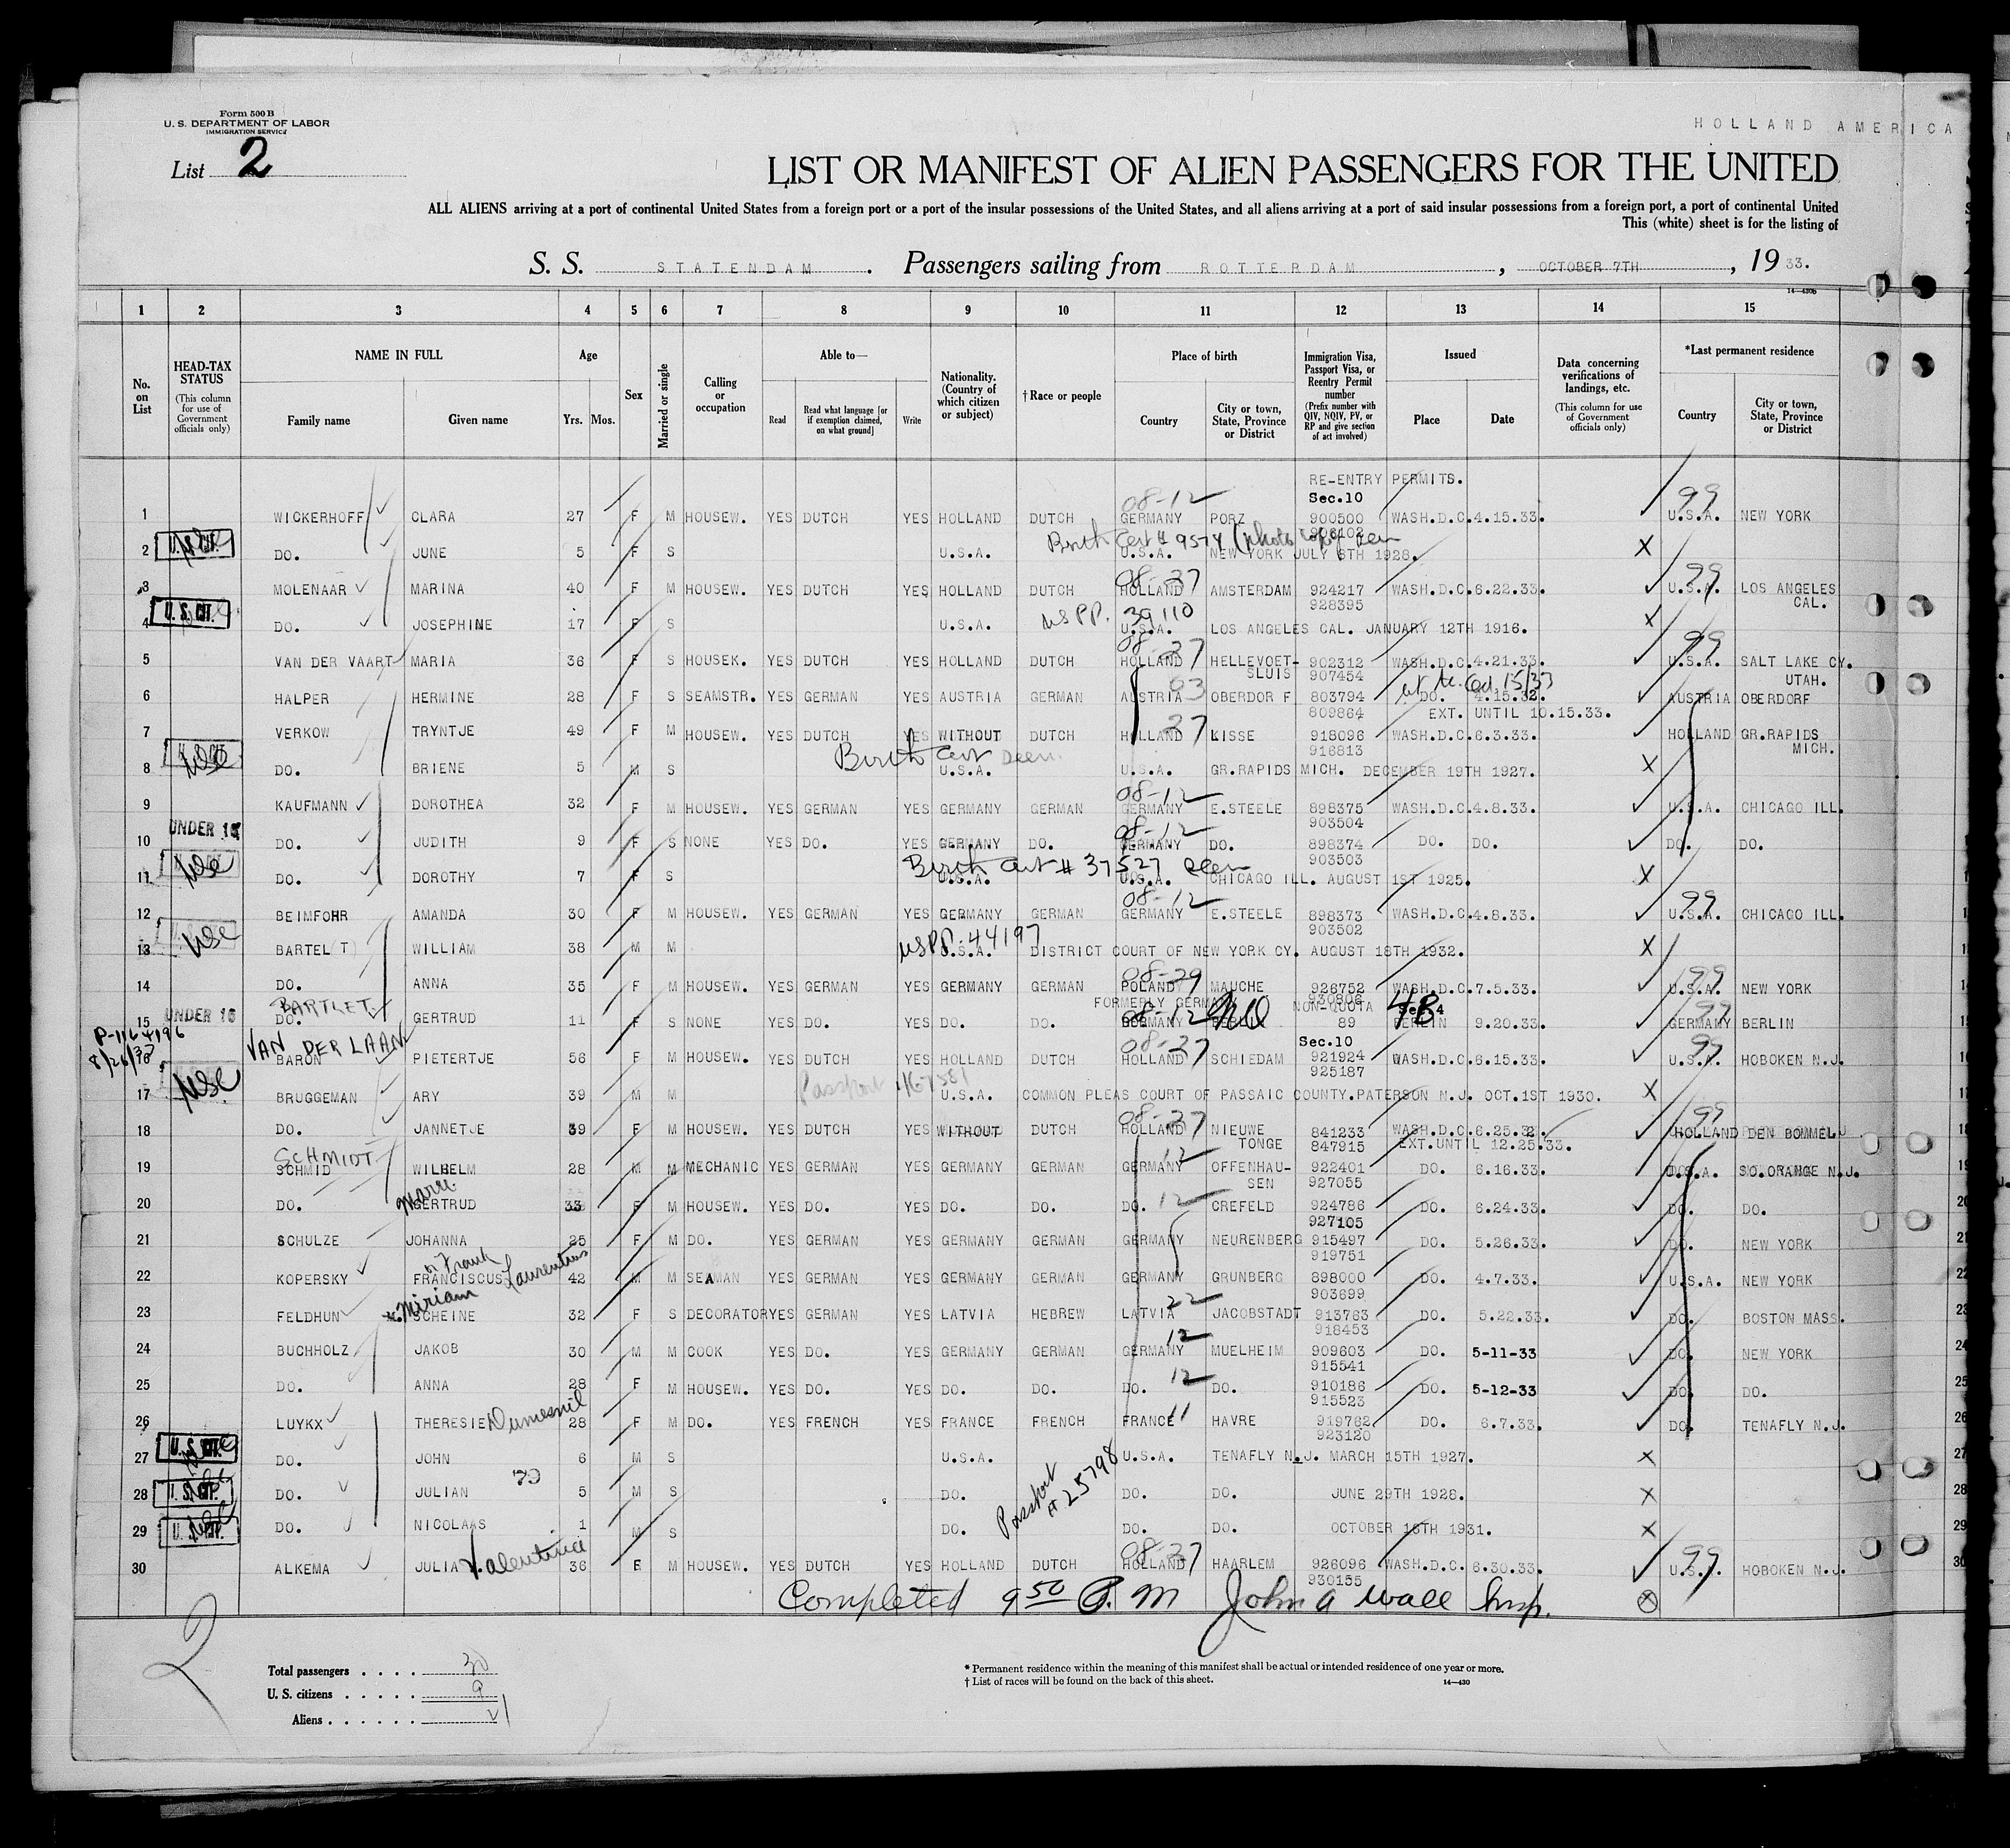 Form 500 B
U. S. DEPARTMENT OF LABOR
IMMIGRATION SERVICE
HOLLAND AMERICA
List 2
LIST OR MANIFEST OF ALIEN PASSENGERS FOR THE UNITED
ALL ALIENS arriving at a port of continental United States from a foreign port or a port of the insular possessions of the United States, and all aliens arriving at a port of said insular possessions from a foreign port, a port of continental United
This (white) sheet is for the listing of
S. S. STATENDAM. Passengers sailing from ROTTERDAM, OCTOBER 7TH, 19 33.
14—430b
1 2 3 4 5 6 7 8 9 10 11 12 13 14 15
No. on List
HEAD-TAX STATUS (This column for use of Government officials only)
NAME IN FULL Family name Given name
Age Yrs. Mos.
Sex
Married or single
Calling or occupation
Able to— Read Read what language [or if exemption claimed, on what ground] Write
Nationality. (Country of which citizen or subject)
† Race or people
Place of birth Country City or town, State, Province or District
Immigration Visa, Passport Visa, or Reentry Permit number (Prefix number with QIV, NQIV, PV, or RP and give section of act involved)
Issued Place Date
Data concerning verifications of landings, etc. (This column for use of Government officials only)
*Last permanent residence Country City or town, State, Province or District
RE-ENTRY PERMITS.
Sec.10
08-12 99
1 WICKERHOFF CLARA 27 F M HOUSEW. YES DUTCH YES HOLLAND DUTCH GERMANY PORZ 900500 WASH.D.C. 4.15.33. U.S.A. NEW YORK
906102
U.S. CIT. Birth Cert # 9574 (photo copy) seen
2 DO. JUNE 5 F S U.S.A. U.S.A. NEW YORK JULY 6TH 1928. X
08-27 99
3 MOLENAAR MARINA 40 F M HOUSEW. YES DUTCH YES HOLLAND DUTCH HOLLAND AMSTERDAM 924217 WASH.D.C. 6.22.33. U.S.A. LOS ANGELES
928395 CAL.
U.S. CIT. US PP. 39110
4 DO. JOSEPHINE 17 F S U.S.A. U.S.A. LOS ANGELES CAL. JANUARY 12TH 1916. X
08-27 99
5 VAN DER VAART MARIA 36 F S HOUSEK. YES DUTCH YES HOLLAND DUTCH HOLLAND HELLEVOET- 902312 WASH.D.C. 4.21.33. U.S.A. SALT LAKE CY.
SLUIS 907454 UTAH.
6 HALPER HERMINE 28 F S SEAMSTR. YES GERMAN YES AUSTRIA GERMAN AUSTRIA 03 OBERDOR F 803794 DO. 4.15.32. AUSTRIA OBERDORF
809864 EXT. UNTIL 10.15.33.
7 VERKOW TRYNTJE 49 F M HOUSEW. YES DUTCH YES WITHOUT DUTCH HOLLAND 27 LISSE 918096 WASH.D.C. 6.3.33. HOLLAND GR.RAPIDS
916813 MICH.
Birth Cert seen.
8 DO. BRIENE 5 M S U.S.A. U.S.A. GR.RAPIDS MICH. DECEMBER 19TH 1927. X
08-12
9 KAUFMANN DOROTHEA 32 F M HOUSEW. YES GERMAN YES GERMANY GERMAN GERMANY E.STEELE 898375 WASH.D.C. 4.8.33. U.S.A. CHICAGO ILL.
903504
UNDER 16 08-12
10 DO. JUDITH 9 F S NONE YES DO. YES GERMANY DO. GERMANY DO. 898374 DO. DO. DO. DO.
903503
USC Birth Cert # 37527 seen
11 DO. DOROTHY 7 F S U.S.A. U.S.A. CHICAGO ILL. AUGUST 1ST 1925. X
08-12 99
12 BEIMFOHR AMANDA 30 F M HOUSEW. YES GERMAN YES GERMANY GERMAN GERMANY E.STEELE 898373 WASH.D.C. 4.8.33. U.S.A. CHICAGO ILL.
903502
USC US PP. 44197
13 BARTEL(T) WILLIAM 38 M M U.S.A. DISTRICT COURT OF NEW YORK CY. AUGUST 18TH 1932. X
08-29 99
14 DO. ANNA 35 F M HOUSEW. YES GERMAN YES GERMANY GERMAN POLAND MAUCHE 926752 WASH.D.C. 7.5.33. U.S.A. NEW YORK
930806
BARTLET FORMERLY GERMANY NON-QUOTA Sec 4
UNDER 16 08-12 4B 99
15 DO. GERTRUD 11 F S NONE YES DO. YES DO. DO. GERMANY BERLIN 89 BERLIN 9.20.33. GERMANY BERLIN
P-1164196
8/26/37
VAN DER LAAN Sec.10
08-27 99
16 BARON PIETERTJE 56 F M HOUSEW. YES DUTCH YES HOLLAND DUTCH HOLLAND SCHIEDAM 921924 WASH.D.C. 6.15.33. U.S.A. HOBOKEN N.J.
925187
USC Passport
17 BRUGGEMAN ARY 39 M M U.S.A. COMMON PLEAS COURT OF PASSAIC COUNTY.PATERSON N.J. OCT.1ST 1930. X
08-27 99
18 DO. JANNETJE 39 F M HOUSEW. YES DUTCH YES WITHOUT DUTCH HOLLAND NIEUWE 841233 WASH.D.C. 6.25.32. HOLLAND DEN BOMMEL
TONGE 847915 EXT.UNTIL 12.25.33.
SCHMIDT 12
19 SCHMID WILHELM 28 M M MECHANIC YES GERMAN YES GERMANY GERMAN GERMANY OFFENHAU- 922401 DO. 6.16.33. U.S.A. SO.ORANGE N.J.
SEN 927055
Marie
20 DO. GERTRUD 33 F M HOUSEW. YES DO. YES DO. DO. DO. 12 CREFELD 924786 DO. 6.24.33. DO. DO.
927105
21 SCHULZE JOHANNA 25 F M DO. YES GERMAN YES GERMANY GERMAN GERMANY NEURENBERG 915497 DO. 5.26.33. DO. NEW YORK
919751
or Frank Laurentius
22 KOPERSKY FRANCISCUS 42 M M SEAMAN YES GERMAN YES GERMANY GERMAN GERMANY GRUNBERG 898000 DO. 4.7.33. U.S.A. NEW YORK
903699
Miriam 22
23 FELDHUN SCHEINE 32 F S DECORATOR YES GERMAN YES LATVIA HEBREW LATVIA JACOBSTADT 913763 DO. 5.22.33. DO. BOSTON MASS.
918453
12
24 BUCHHOLZ JAKOB 30 M M COOK YES DO. YES GERMANY GERMAN GERMANY MUELHEIM 909603 DO. 5-11-33 DO. NEW YORK
915541
25 DO. ANNA 28 F M HOUSEW. YES DO. YES DO. DO. DO. 12 DO. 910186 DO. 5-12-33 DO. DO.
915523
26 LUYKX THERESIE Dumesnil 28 F M DO. YES FRENCH YES FRANCE FRENCH FRANCE 11 HAVRE 919762 DO. 6.7.33. DO. TENAFLY N.J.
923120
U.S. CIT.
27 DO. JOHN 6 M S U.S.A. U.S.A. TENAFLY N.J. MARCH 15TH 1927. X
U.S. CIT.
28 DO. JULIAN 5 M S DO. DO. DO. JUNE 29TH 1928. X
Passport # 25798
U.S. CIT.
29 DO. NICOLAAS 1 M S DO. DO. DO. OCTOBER 16TH 1931. X
08-27 99
30 ALKEMA JULIA Valentina 36 F M HOUSEW. YES DUTCH YES HOLLAND DUTCH HOLLAND HAARLEM 926096 WASH.D.C. 6.30.33. U.S.A. HOBOKEN N.J.
930155
Completed 9 50 P. M John A Wall Insp.
2
Total passengers . . . . 30
U. S. citizens . . . . . 9
Aliens . . . . . . 21
* Permanent residence within the meaning of this manifest shall be actual or intended residence of one year or more.
† List of races will be found on the back of this sheet.
14—430